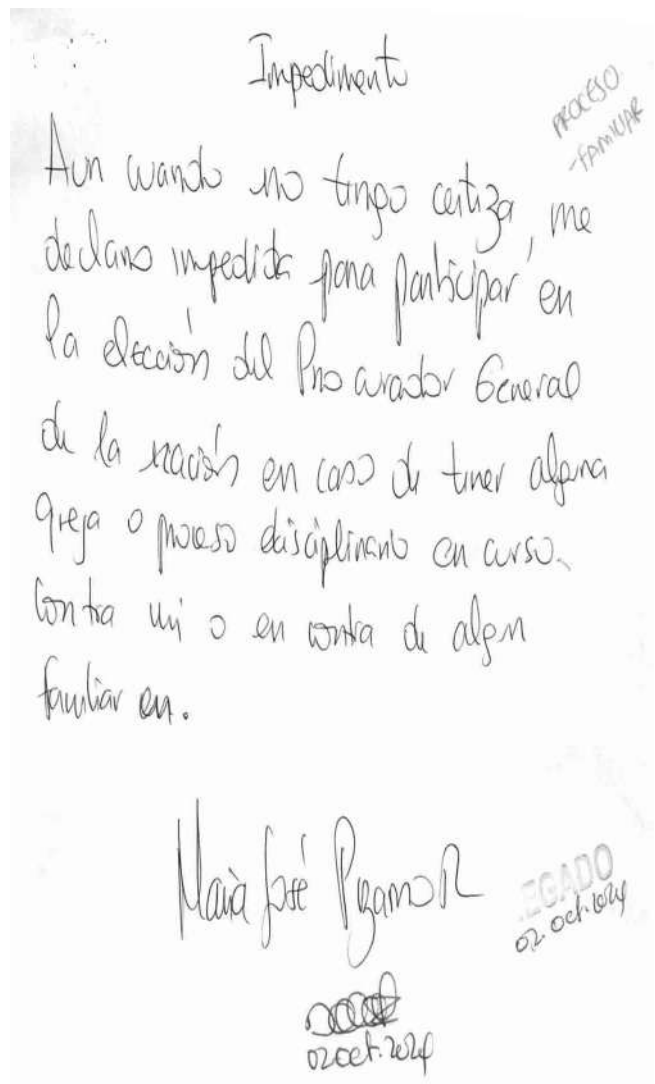 Impedimento
PROCESO
-FAMILIAR
Aun cuando no tengo certeza, me
declaro impedida para participar en
la elección del Procurador General
de la nación en caso de tener alguna
queja o proceso disciplinario en curso.
Contra mi o en contra de algún
familiar en.
María José Pizarro R
EGADO
02 oct. 2024
02 oct. 2024